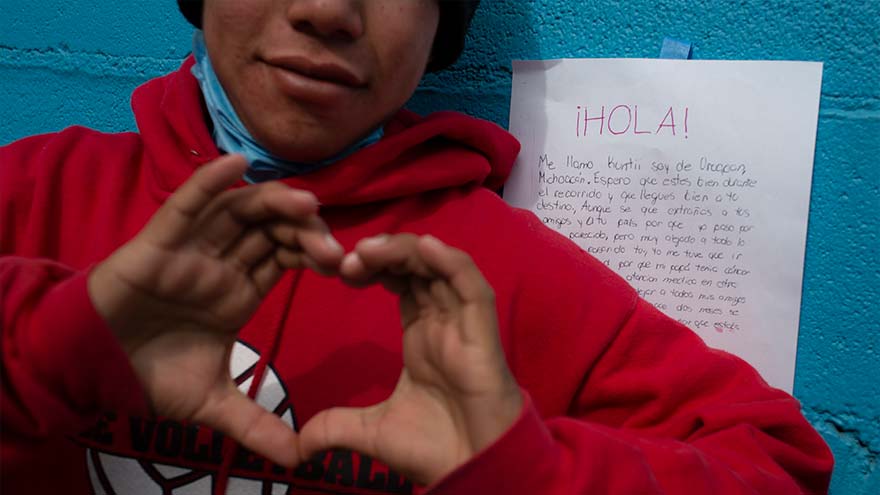 ¡HOLA!
Me llamo Kuntii soy de Uruapan,
Michoacán, Espero que estes bien durante
el recorrido y que llegues bien a tu
destino, Aunque se que extrañas a tus
amigos y a tu país por que yo paso por
parecido, pero muy alegado a todo lo
pasando tu, Yo me tuve que ir
por que mi papá tenia cáncer
atencion medica en otra
a todos mis amigos
dos meses se
por que estás
VOLLEYBALL